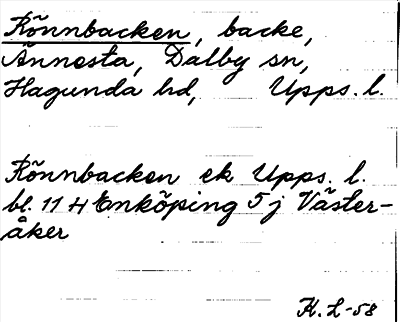 Rönnbacken, backe,
Ännesta, Dalby sn,
Hagunda hd, Upps. l.
Rönnbacken ek Upps. l.
bl. 11 H Enköping 5 j Väster-
åker
K. L-58